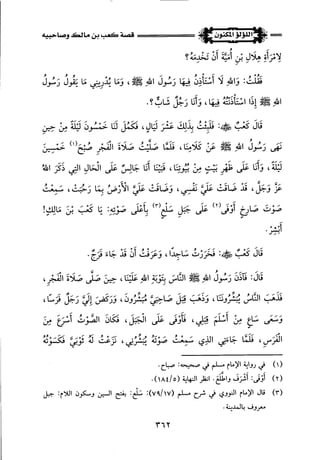 اللؤلؤ المكنون
قصة كعب بن مالك وصاحبيه
لامْرَأَةِ هِلَالِ بْنِ أُمَيَّةَ أَنْ تَخْدُمَهُ؟
فَقُلْتُ: وَاللهِ لَا أَسْتَأْذِنُ فِيهَا رَسُولَ اللهِ ﷺ، وَمَا يُدْرِينِي مَا يَقُولُ رَسُولُ
اللهِ ﷺ إِذَا اسْتَأْذَنْتُهُ فِيهَا، وَأَنَا رَجُلٌ شَابٌّ؟.
قَالَ كَعْبٌ ﷺ: فَلَبِثْتُ بِذَلِكَ عَشْرَ لَيَالٍ، فَكَمُلَ لَنَا خَمْسُونَ لَيْلَةً مِنْ حِينِ
نَهَى رَسُولُ اللهِ ﷺ عَنْ كَلَامِنَا، فَلَمَّا صَلَّيْتُ صَلَاةَ الْفَجْرِ صُبْحَ(١) خَمْسِينَ
لَيْلَةً، وَأَنَا عَلَى ظَهْرِ بَيْتٍ مِنْ بُيُوتِنَا، فَبَيْنَا أَنَا جَالِسٌ عَلَى الْحَالِ الَّتِي ذَكَرَ اللهُ
عَزَّ وَجَلَّ، قَدْ ضَاقَتْ عَلَيَّ نَفْسِي، وَضَاقَتْ عَلَيَّ الْأَرْضُ بِمَا رَحُبَتْ، سَمِعْتُ
صَوْتَ صَارِخٍ أَوْفَى(٢) عَلَى جَبَلِ سَلْعٍ(٣) بِأَعْلَى صَوْتِهِ: يَا كَعْبُ بْنَ مَالِكٍ!
أَبْشِرْ.
قَالَ كَعْبٌ ﷺ: فَخَرَرْتُ سَاجِدًا، وَعَرَفْتُ أَنْ قَدْ جَاءَ فَرَجٌ.
قَالَ: فَآذَنَ رَسُولُ اللهِ ﷺ النَّاسَ بِتَوْبَةِ اللهِ عَلَيْنَا، حِينَ صَلَّى صَلَاةَ الْفَجْرِ،
فَذَهَبَ النَّاسُ يُبَشِّرُونَنَا، وَذَهَبَ قِبَلَ صَاحِبَيَّ مُبَشِّرُونَ، وَرَكَضَ إِلَيَّ رَجُلٌ فَرَسًا،
وَسَعَى سَاعٍ مِنْ أَسْلَمَ قِبَلِي، فَأَوْفَى عَلَى الْجَبَلِ، فَكَانَ الصَّوْتُ أَسْرَعَ مِنَ
الْفَرَسِ، فَلَمَّا جَاءَنِي الَّذِي سَمِعْتُ صَوْتَهُ يُبَشِّرُنِي، نَزَعْتُ لَهُ ثَوْبَيَّ فَكَسَوْتُهُ
(١) في رواية الإمام مسلم في صحيحه: صباح.
(٢) أوفى: أشرف واطلع. انظر النهاية (١٨٤/٥).
(٣) قال الإمام النووي في شرح مسلم (٧٩/١٧): سَلْع: بفتح السين وسكون اللام: جبل
معروف بالمدينة.
٣٦٢